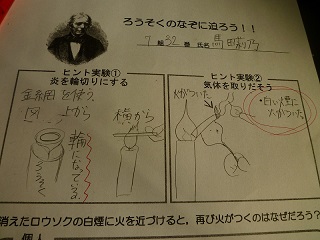 ろうそくのなぞに迫ろう！！
7 組 32 番 氏名
ヒント実験①
炎を輪切りにする
金網を使う
図 上から
横から
輪になっている。
ろうそく
ヒント実験②
気体を取りだそう
火がついた
・白い煙に
火がついた
消えたロウソクの白煙に火を近づけると，再び火がつくのはなぜだろう？